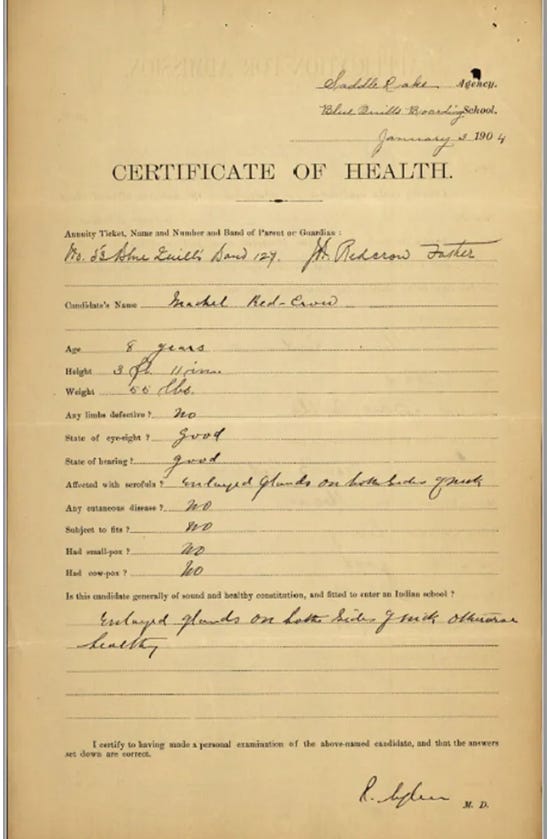 Saddle Lake Agency.
Blue Quills Boarding School.
January 3 1904
CERTIFICATE OF HEALTH.
Annuity Ticket, Name and Number and Band of Parent or Guardian :
No. 53 Blue Quill's Band 127. Redcrow Father
Candidate's Name Red-Crow
Age 8 years
Height 3 ft. 11 in.
Weight 55 lbs.
Any limbs defective ? No
State of eye-sight ? Good
State of hearing ? good
Affected with scrofula ? Enlarged glands on both sides of neck
Any cutaneous disease ? No
Subject to fits ? No
Had small-pox ? No
Had cow-pox ? No
Is this candidate generally of sound and healthy constitution, and fitted to enter an Indian school ?
Enlarged glands on both sides of neck otherwise
healthy
I certify to having made a personal examination of the above-named candidate, and that the answers
set down are correct.
M. D.